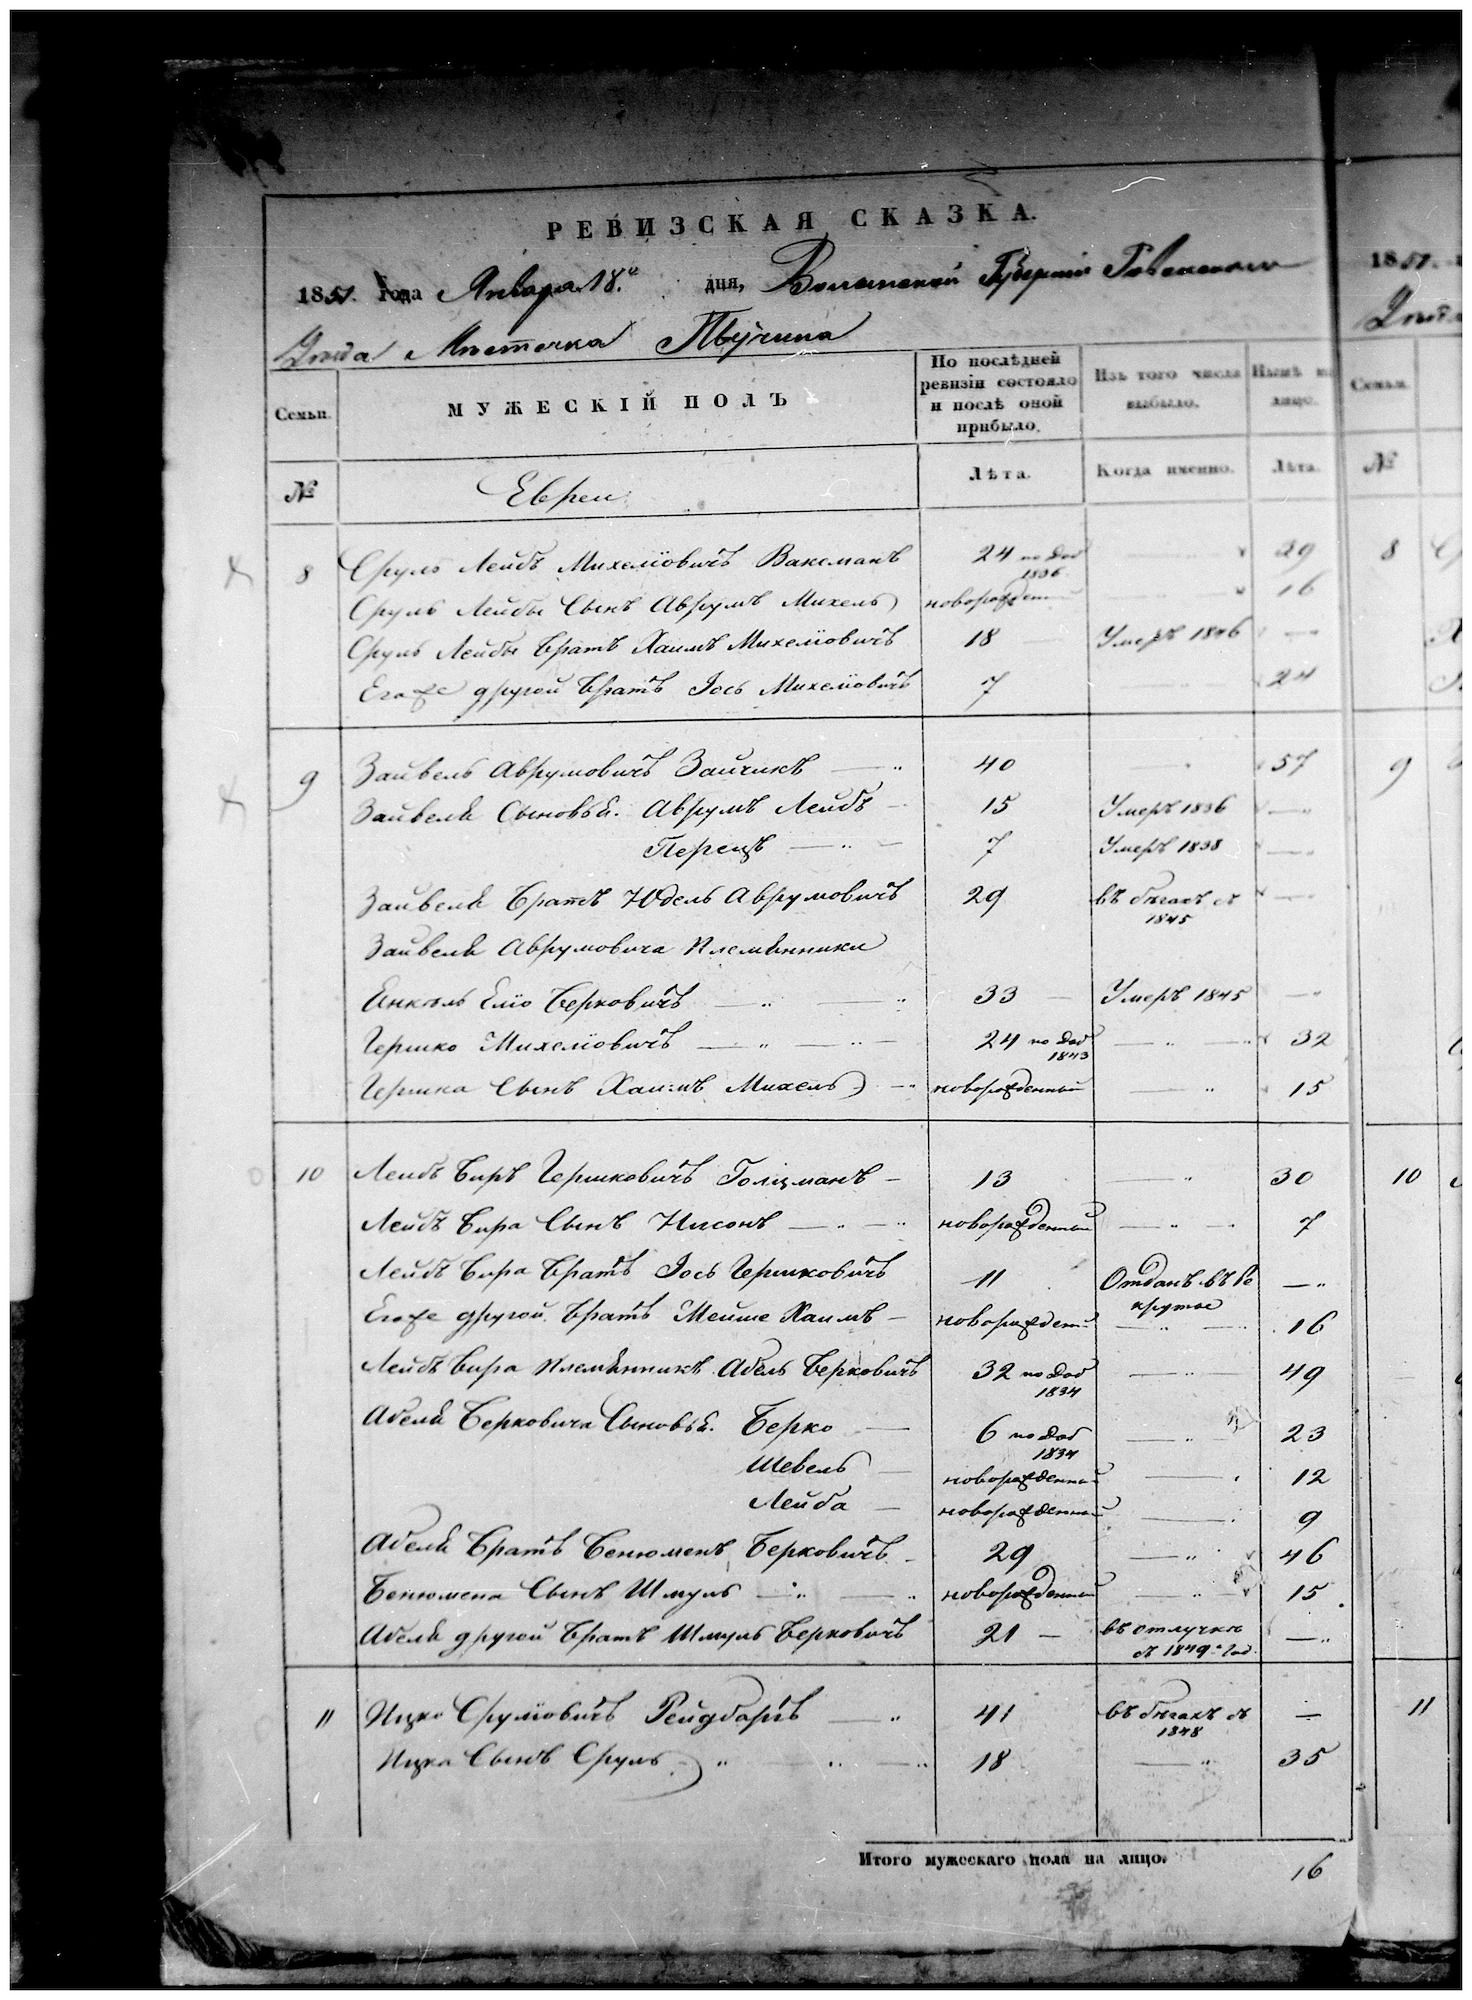 РЕВИЗСКАЯ СКАЗКА.
1851. Года Января 18.го дня, Волынской Губернии Ровенского
Уезда Местечка Тучина
Семьи. МУЖЕСКІЙ ПОЛЪ По послѣдней ревизіи состояло и послѣ оной прибыло. Изъ того числа выбыло. Нынѣ на лицо.
№ Евреи Лѣта. Когда именно. Лѣта.
8 Сруль Лейбъ Михеліовичъ Ваксманъ 24 по Доп 1836 — 29
Сруль Лейбы Сынъ Аврумъ Михель новорожден — 16
Сруль Лейбы Братъ Хаимъ Михеліовичъ 18 — Умеръ 1846 —
Егоже другой Братъ Іось Михеліовичъ 7 — 24
9 Зайвель Аврумовичъ Зайчикъ — 40 — 57
Зайвеля Сыновья. Аврумъ Лейбъ — 15 Умеръ 1836 —
Перецъ — 7 Умеръ 1838 —
Зайвеля Братъ Юдель Аврумовичъ 29 въ бѣгахъ съ 1845 —
Зайвеля Аврумовича Племянники
Янкель Еліо Берковичъ — 33 — Умеръ 1845 —
Гершко Михеліовичъ — 24 по Доп 1843 — 32
Гершка Сынъ Хаимъ Михель — новорожденный — 15
10 Лейбъ Биръ Гершковичъ Голцманъ — 13 — 30
Лейбъ Бира Сынъ Нисонъ — новорожденный — 7
Лейбъ Бира Братъ Іось Гершковичъ 11 Отданъ въ Рекруты —
Егоже другой Братъ Мейше Хаимъ — новорожден — 16
Лейбъ Бира Племянникъ Абель Берковичъ 32 по Доп 1834 — 49
Абеля Берковича Сыновья. Берко — 6 по Доп 1834 — 23
Шевель — новорожденный — 12
Лейба — новорожденный — 9
Абеля Братъ Бенюменъ Берковичъ — 29 — 46
Бенюмена Сынъ Шмуль — новорожденный — 15
Абеля другой Братъ Шмуль Берковичъ 21 — въ отлучке съ 1849 год. —
11 Ицко Сруліовичъ Рейдбартъ — 41 въ бѣгахъ съ 1848 —
Ицка Сынъ Сруль — 18 — 35
Итого мужескаго пола на лицо. 16
1851.
Семьи.
№
8
9
10
11